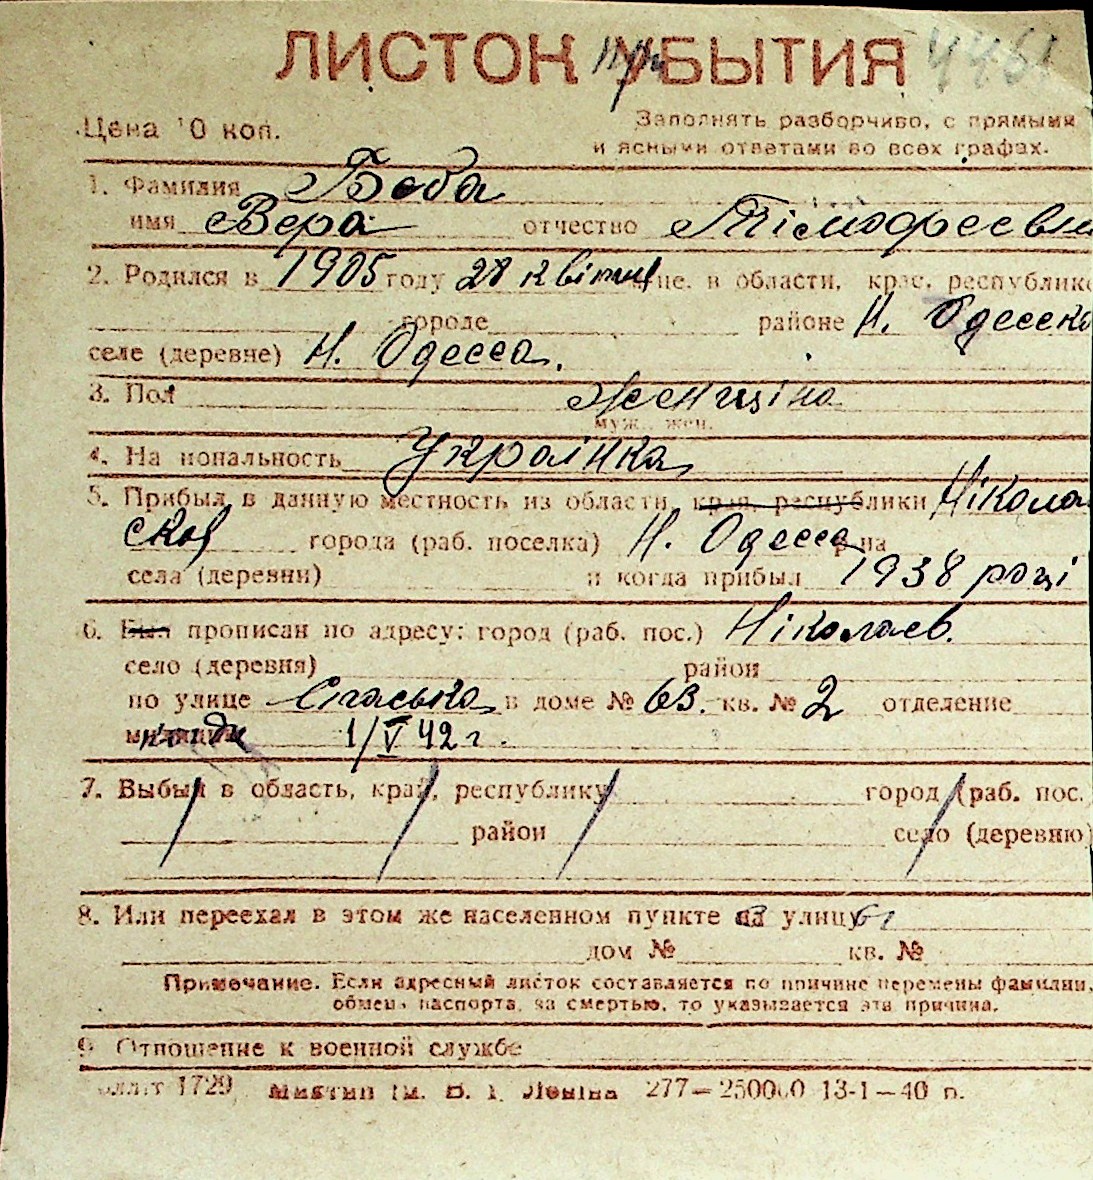 ЛИСТОК при УБЫТИЯ 4461
Цена 10 коп.
Заполнять разборчиво, с прямыми
и ясными ответами во всех графах.
1. Фамилия Боба
имя Вера отчество Тімофреевн
2. Родился в 1905 году 28 квітня в области, крае, республике
городе районе Н. Одеско
селе (деревне) Н. Одесса.
3. Пол женщіна
муж., жен.
4. Национальность Українка
5. Прибыл в данную местность из области, края, республики Нікола
ской города (раб. поселка) Н. Одесса р-на
села (деревни) и когда прибыл 1938 році
6. Был прописан по адресу: город (раб. пос.) Ніколаев.
село (деревня) район
по улице Спаська в доме № 63. кв. № 2 отделение
милиции когда 1/V 42 г.
7. Выбыл в область, край, республику город (раб. пос.
район село (деревню)
8. Или переехал в этом же населенном пункте на улицу
дом № кв. №
Примечание. Если адресный листок составляется по причине перемены фамилии,
обмена паспорта, за смертью, то указывается эта причина.
9. Отношение к военной службе
1729 Миктип ім. В. І. Леніна 277—250000 13-1—40 р.